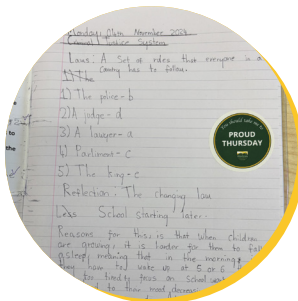 Monday, November
Criminal Justice System
Laws: A Set of rules that everyone in a
Country has to follow.
1) The
1) The police - b
2) A judge - d
3) A lawyer - a
4) Parliment - c
5) The king - c
Reflection: The changing law
Less School starting later.
Reasons for this, is that when children
are growing, it is harder for them to fall
asleep, meaning that in the morning
they have to wake up at 5 or 6
tired, focus on School work
mood decreases
You should take me to
PROUD
THURSDAY
to